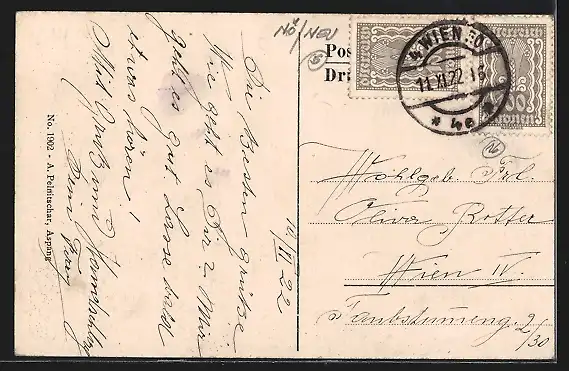 NÖ/NEU
Pos
Dr
WIEN 50
11.XI.22
* 4c *
10/XI 22
Die Besten Grüsse
Wie geht es Dir? Mir
geht es gut. Lasse bald
etwas hören!
Mit Gruß und
Dein Ferry
No. 1902 - A. Pelnitschar, Aspang
Wohlgeb. Frl.
Oliva Rotter
Wien IV.
Taubstummeng. 2/30